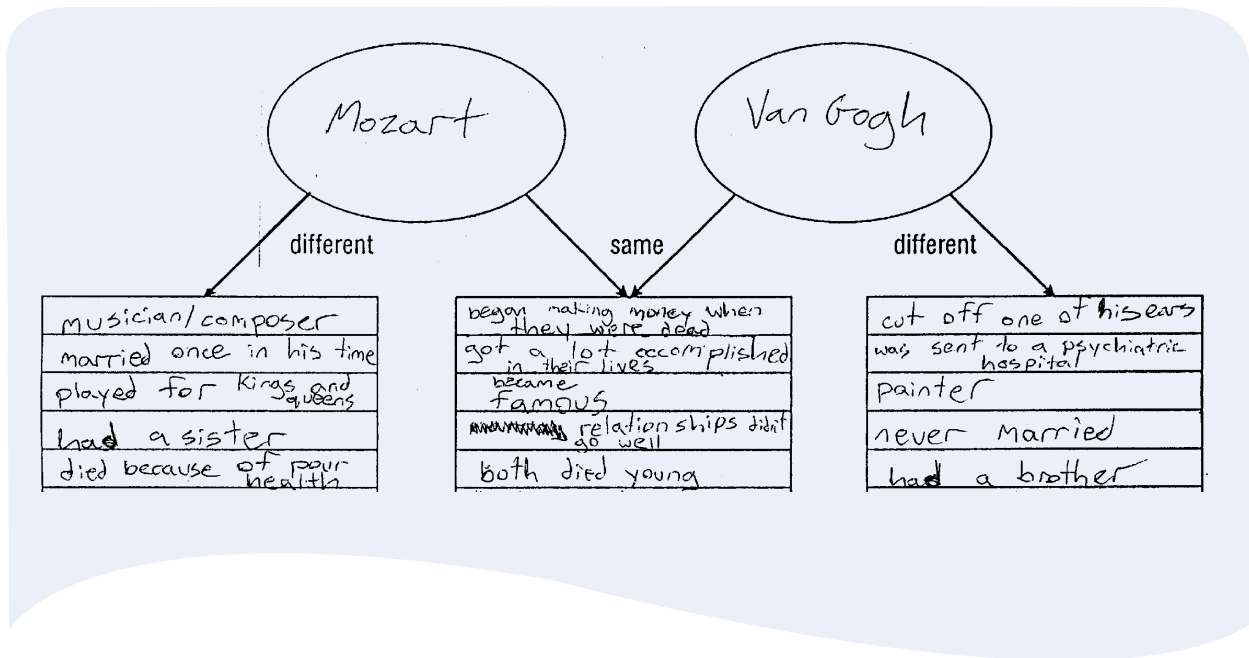 Mozart
Van Gogh
different
same
different
musician/composer
married once in his time
played for Kings and
queens
had a sister
died because of pour
health
began making money when
they were dead
got a lot accomplished
in their lives
became
famous
relationships didn't
go well
both died young
cut off one of his ears
was sent to a psychiatric
hospital
painter
never married
had a brother